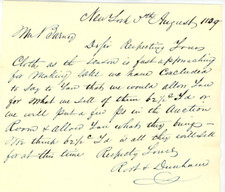 New York 5th August 1839
Mr P Barney
Dr Sir Respecting Yours
Cloth as the season is fast approaching
for Making Sales we have Concluded
to Say to You that we would allow You
for what we sell of them
we will put a few Ps in the Auction
Room & allow You what they bring
We think is all they will sell
for at this time Respectfy Yours
Root & Dunham